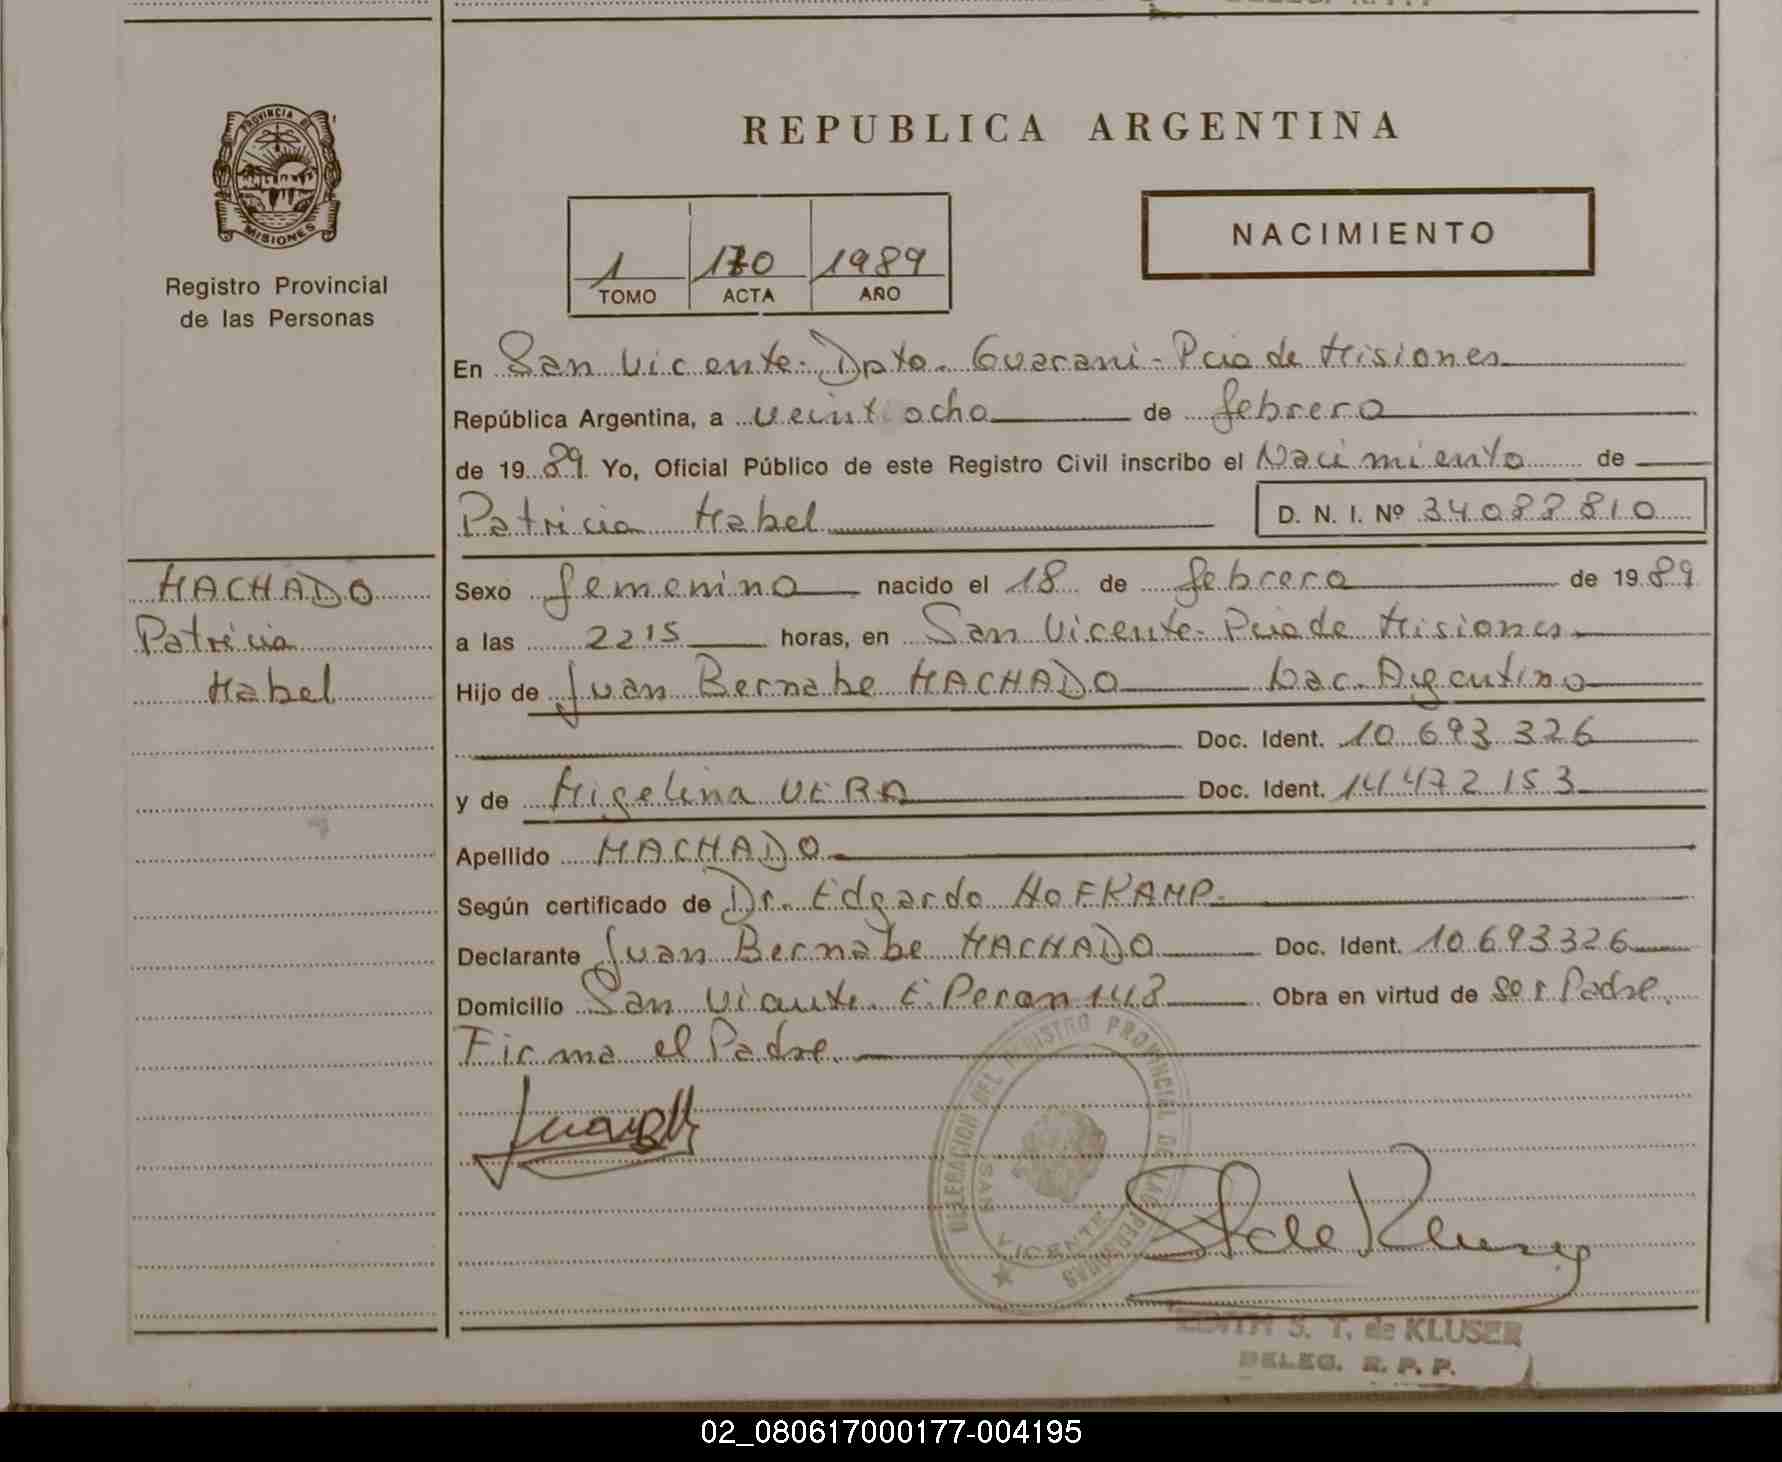 PROVINCIA DE
MISIONES
Registro Provincial
de las Personas
REPUBLICA ARGENTINA
NACIMIENTO
1 170 1989
TOMO ACTA AÑO
En San Vicente - Dpto. Guarani - Pcia de Misiones
República Argentina, a veintiocho de febrero
de 1989. Yo, Oficial Público de este Registro Civil inscribo el Nacimiento de
Patricia Mabel D. N. I. Nº 34088810
MACHADO
Patricia
Mabel
Sexo femenino nacido el 18 de febrero de 1989
a las 22 15 horas, en San Vicente - Pcia de Misiones
Hijo de Juan Bernabe MACHADO Nac. Argentino
Doc. Ident. 10.693.326
y de Migelina VERA Doc. Ident. 14.472.153
Apellido MACHADO
Según certificado de Dr. Edgardo HOFKAMP.
Declarante Juan Bernabe MACHADO Doc. Ident. 10.693326
Domicilio San Vicente. E. Peron 143 Obra en virtud de ser Padre.
Firma el Padre.
DELEGACION DEL REGISTRO PROVINCIAL DE LAS PERSONAS
SAN VICENTE
S. T. de Kluser
EDITH S. T. de KLUSER
DELEG. R. P. P.
02_080617000177-004195